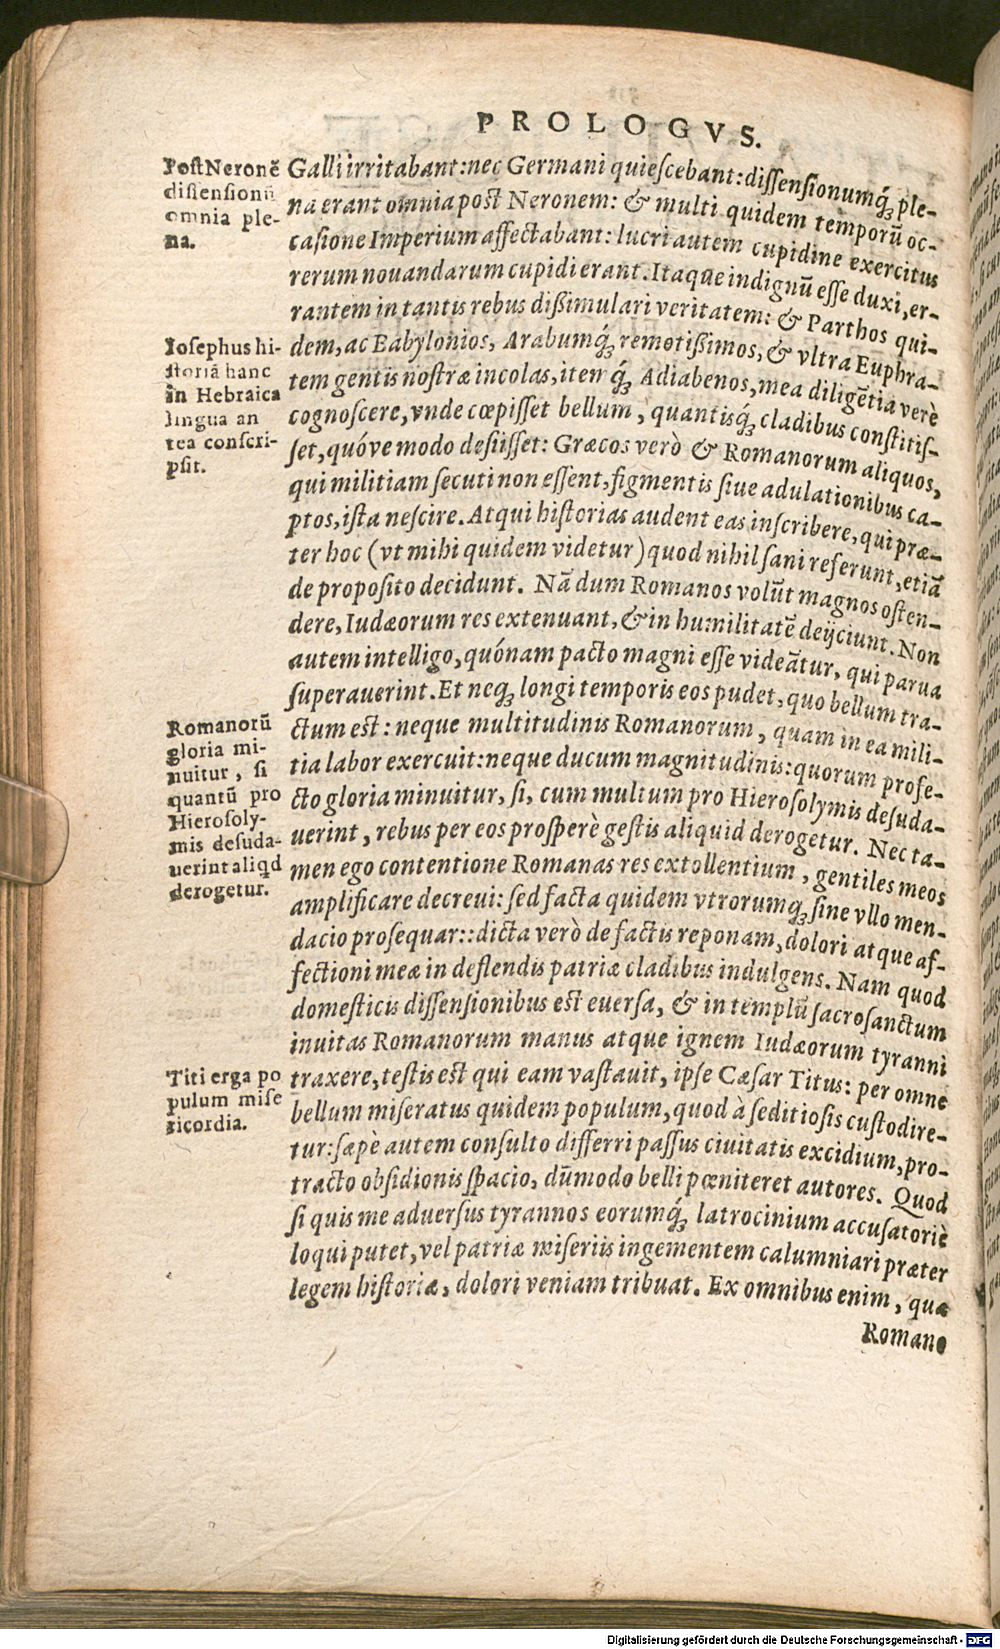 PROLOGVS.
Galli irritabant: nec Germani quiescebant: dissensionumq́; ple-
na erant omnia post Neronem: & multi quidem temporũ oc-
casione Imperium affectabant: lucri autem cupidine exercitus
rerum nouandarum cupidi erant. Itaque indignũ esse duxi, er-
rantem in tantis rebus dißimulari veritatem: & Parthos qui-
dem, ac Babylonios, Arabumq́; remotißimos, & vltra Euphra-
tem gentis nostræ incolas, item q́; Adiabenos, mea diligẽtia verè
cognoscere, vnde cœpisset bellum, quantisq́; cladibus constitis-
set, quóve modo desijsset: Græcos verò & Romanorum aliquos,
qui militiam secuti non essent, figmentis siue adulationibus ca-
ptos, ista nescire. Atqui historias audent eas inscribere, qui præ-
ter hoc (vt mihi quidem videtur) quod nihil sani referunt, etiã
de proposito decidunt. Nã dum Romanos volũt magnos osten-
dere, Iudæorum res extenuant, & in humilitatẽ deijciunt. Non
autem intelligo, quónam pacto magni esse videãtur, qui parua
superauerint. Et neq; longi temporis eos pudet, quo bellum tra-
ctum est: neque multitudinis Romanorum, quam in ea mili-
tia labor exercuit: neque ducum magnitudinis: quorum profe-
cto gloria minuitur, si, cum multum pro Hierosolymis desuda-
uerint, rebus per eos prosperè gestis aliquid derogetur. Nec ta-
men ego contentione Romanas res extollentium, gentiles meos
amplificare decreui: sed facta quidem vtrorumq; sine vllo men-
dacio prosequar:: dicta verò de factis reponam, dolori atque af-
fectioni meæ in deflendis patriæ cladibus indulgens. Nam quod
domesticis dissensionibus est euersa, & in templũ sacrosanctum
inuitas Romanorum manus atque ignem Iudæorum tyranni
traxere, testis est qui eam vastauit, ipse Cæsar Titus: per omne
bellum miseratus quidem populum, quod à seditiosis custodire-
tur: sæpè autem consulto differri passus ciuitatis excidium, pro-
tracto obsidionis spacio, dũmodo belli pœniteret autores. Quod
si quis me aduersus tyrannos eorumq́; latrocinium accusatoriè
loqui putet, vel patriæ miseriis ingementem calumniari præter
legem historiæ, dolori veniam tribuat. Ex omnibus enim, quæ
Romano
Post Neronẽ
dissensionũ
omnia ple-
na.
Iosephus hi-
storiã hanc
in Hebraica
lingua an
tea conscri-
psit.
Romanorũ
gloria mi-
nuitur, si
quantũ pro
Hierosoly-
mis desuda-
uerint aliqd
derogetur.
Titi erga po
pulum mise
ricordia.
Digitalisierung gefördert durch die Deutsche Forschungsgemeinschaft - DFG